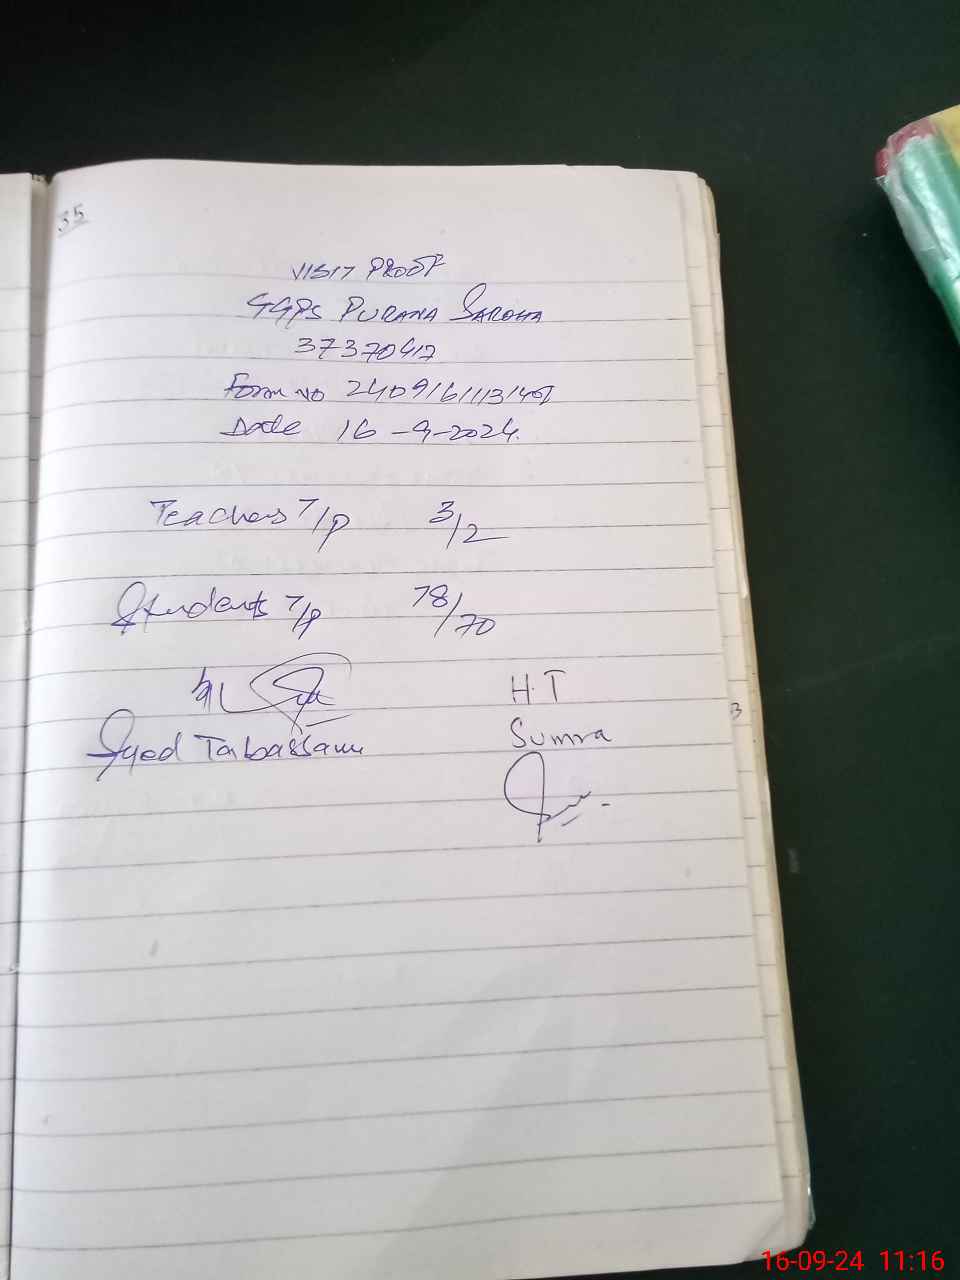 35
VISIT PROOF
GGPS PURANA SAROHA
37370417
Form no 2409161113140
Date 16-9-2024.
Teachers T/P 3/2
Students T/P 78/70
H.T
Syed Tabassam
Sumra
16-09-24 11:16